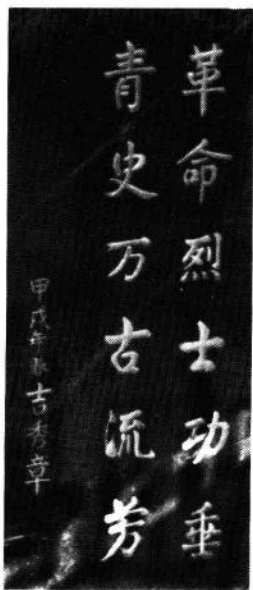 革命烈士功垂
青史万古流芳
甲戌年秋吉秀章